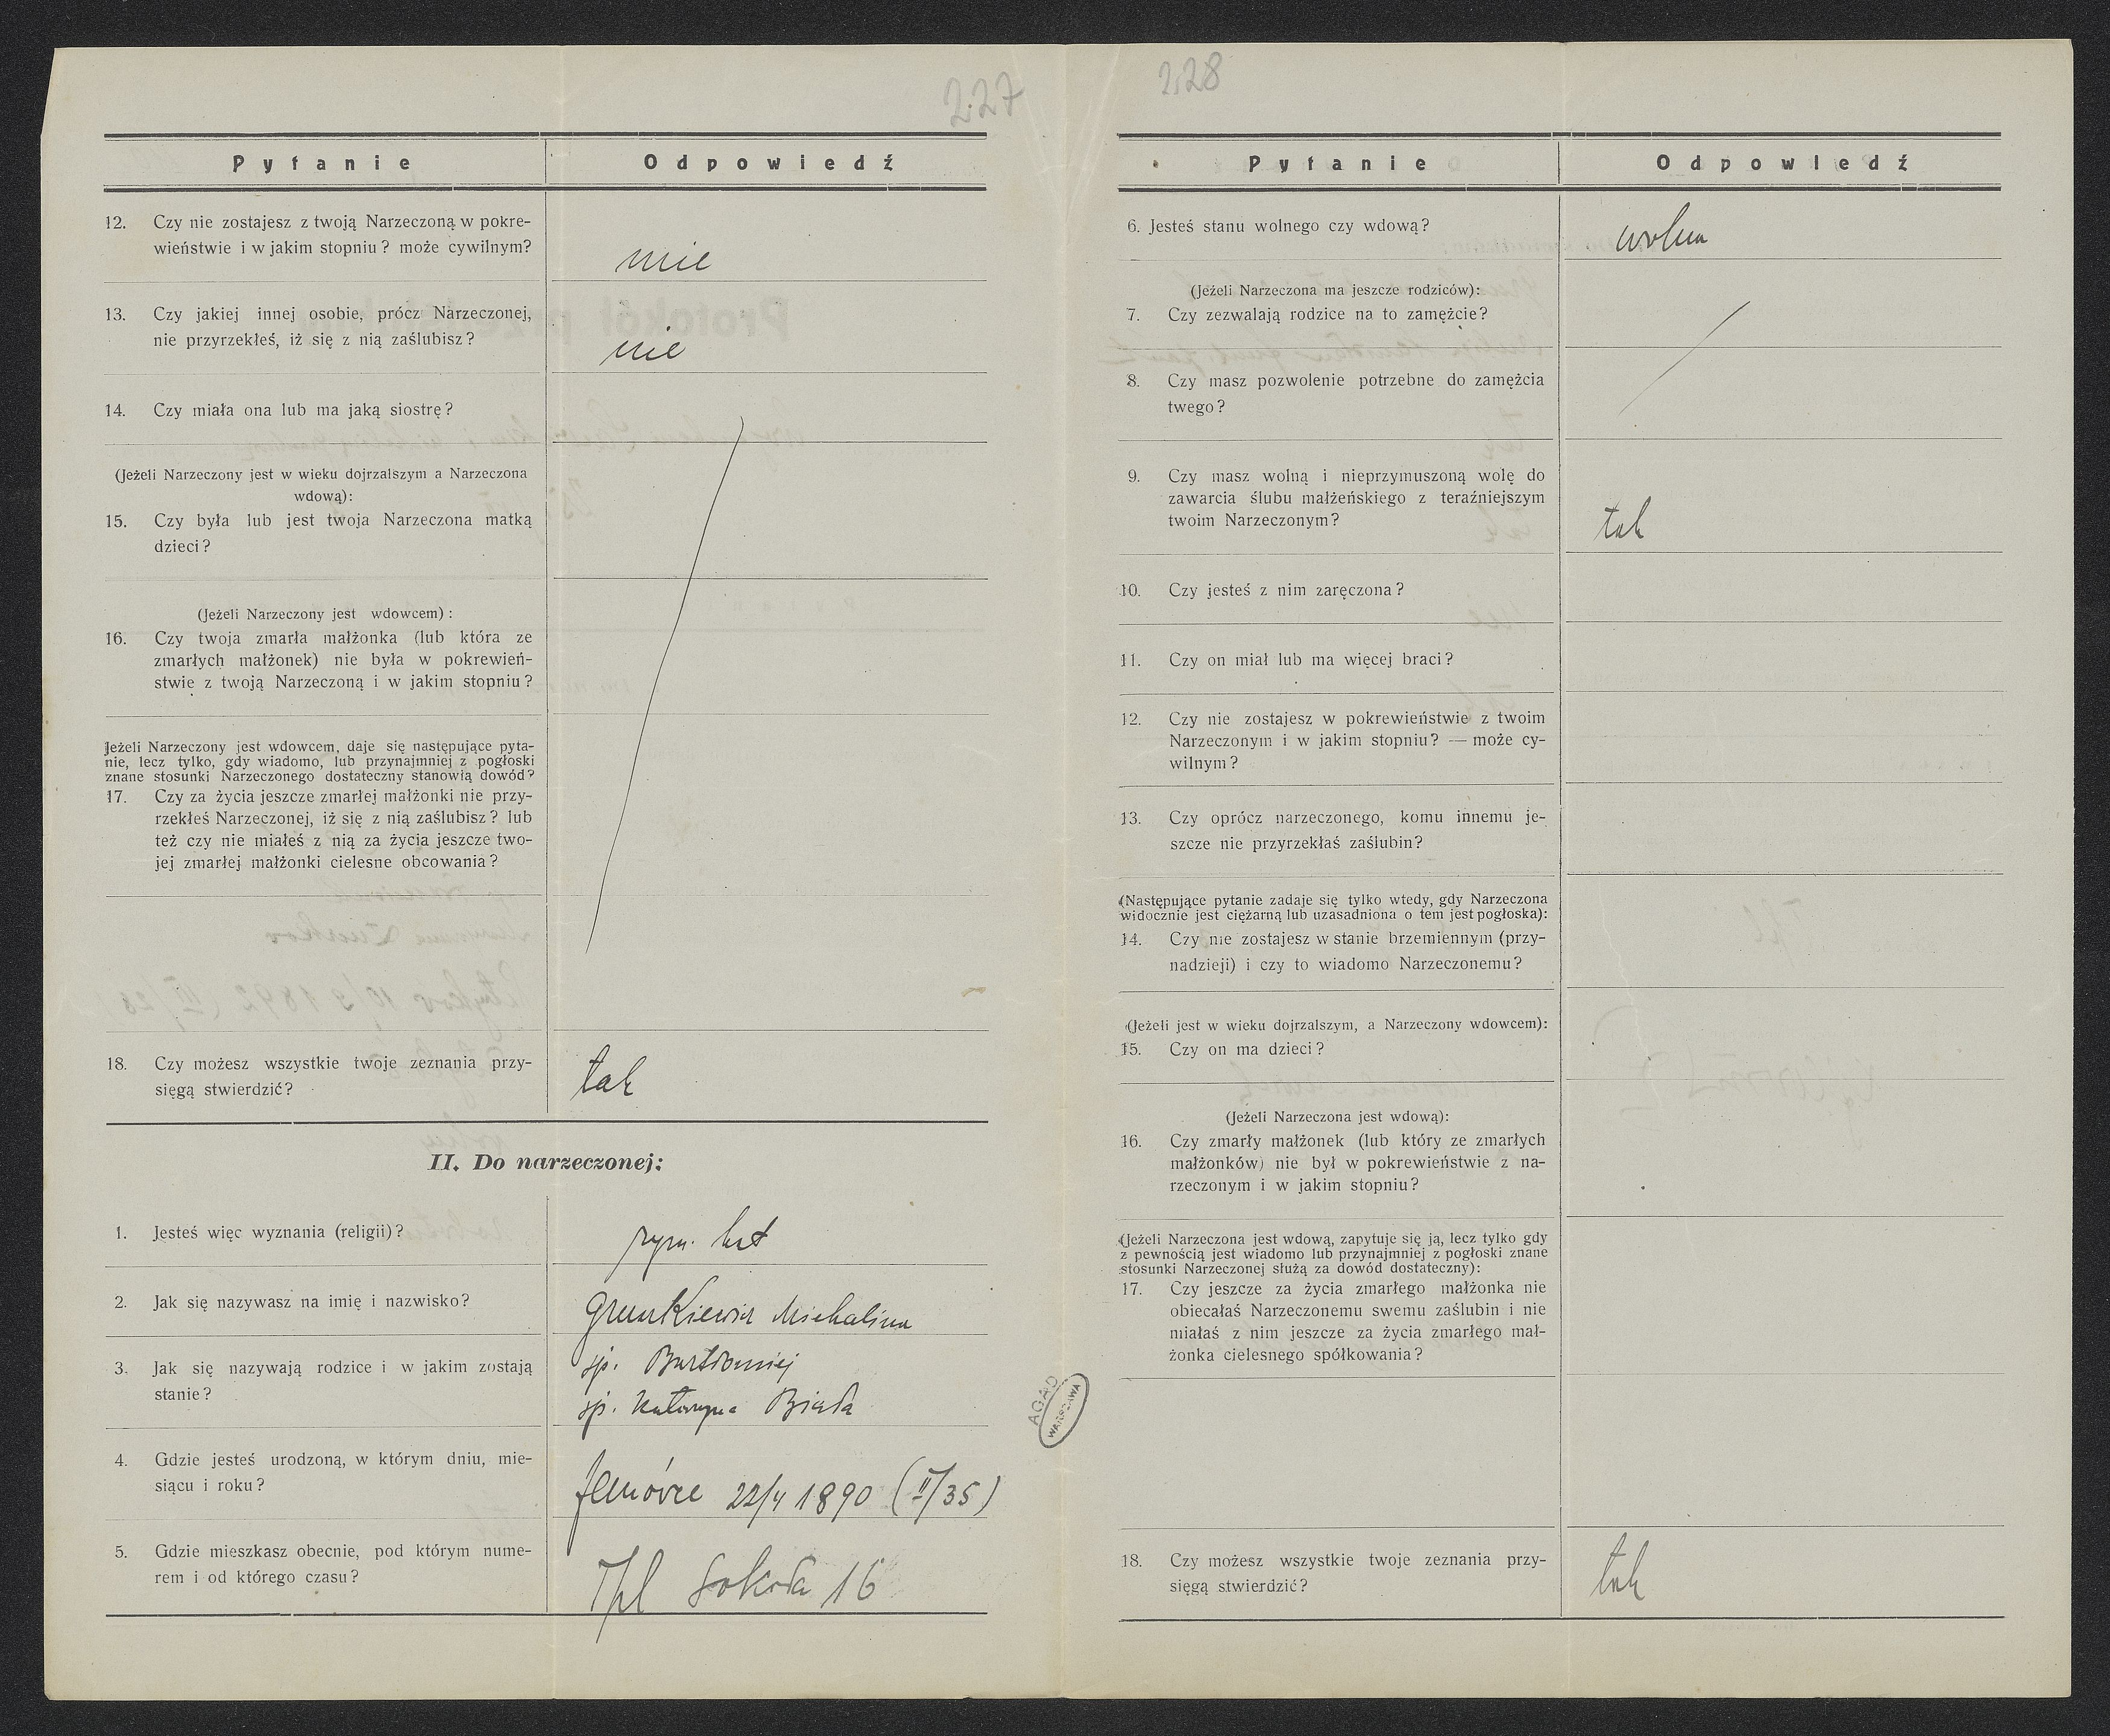 227
Pytanie Odpowiedź
12. Czy nie zostajesz z twoją Narzeczoną w pokre-
wieństwie i w jakim stopniu? może cywilnym?
nie
13. Czy jakiej innej osobie, prócz Narzeczonej,
nie przyrzekłeś, iż się z nią zaślubisz?
nie
14. Czy miała ona lub ma jaką siostrę?
(Jeżeli Narzeczony jest w wieku dojrzalszym a Narzeczona
wdową):
15. Czy była lub jest twoja Narzeczona matką
dzieci?
(Jeżeli Narzeczony jest wdowcem):
16. Czy twoja zmarła małżonka (lub która ze
zmarłych małżonek) nie była w pokrewień-
stwie z twoją Narzeczoną i w jakim stopniu?
Jeżeli Narzeczony jest wdowcem, daje się następujące pyta-
nie, lecz tylko, gdy wiadomo, lub przynajmniej z pogłoski
znane stosunki Narzeczonego dostateczny stanowią dowód?
17. Czy za życia jeszcze zmarłej małżonki nie przy-
rzekłeś Narzeczonej, iż się z nią zaślubisz? lub
też czy nie miałeś z nią za życia jeszcze two-
jej zmarłej małżonki cielesne obcowania?
18. Czy możesz wszystkie twoje zeznania przy-
sięgą stwierdzić?
tak
II. Do narzeczonej:
1. Jesteś więc wyznania (religii)?
rzym. kat
2. Jak się nazywasz na imię i nazwisko?
Michalina
3. Jak się nazywają rodzice i w jakim zostają
stanie?
śp. Bartłomiej
śp. Katarzyna Biała
4. Gdzie jesteś urodzoną, w którym dniu, mie-
siącu i roku?
22/4 1890 (II/35)
5. Gdzie mieszkasz obecnie, pod którym nume-
rem i od którego czasu?
Tpl Sokoła 16
AGAD
WARSZAWA
228
Pytanie Odpowiedź
6. Jesteś stanu wolnego czy wdową?
wolna
(Jeżeli Narzeczona ma jeszcze rodziców):
7. Czy zezwalają rodzice na to zamężcie?
8. Czy masz pozwolenie potrzebne do zamężcia
twego?
9. Czy masz wolną i nieprzymuszoną wolę do
zawarcia ślubu małżeńskiego z teraźniejszym
twoim Narzeczonym?
tak
10. Czy jesteś z nim zaręczona?
11. Czy on miał lub ma więcej braci?
12. Czy nie zostajesz w pokrewieństwie z twoim
Narzeczonym i w jakim stopniu? — może cy-
wilnym?
13. Czy oprócz narzeczonego, komu innemu je-
szcze nie przyrzekłaś zaślubin?
(Następujące pytanie zadaje się tylko wtedy, gdy Narzeczona
widocznie jest ciężarną lub uzasadniona o tem jest pogłoska):
14. Czy nie zostajesz w stanie brzemiennym (przy-
nadzieji) i czy to wiadomo Narzeczonemu?
(Jeżeli jest w wieku dojrzalszym, a Narzeczony wdowcem):
15. Czy on ma dzieci?
(Jeżeli Narzeczona jest wdową):
16. Czy zmarły małżonek (lub który ze zmarłych
małżonków) nie był w pokrewieństwie z na-
rzeczonym i w jakim stopniu?
(Jeżeli Narzeczona jest wdową, zapytuje się ją, lecz tylko gdy
z pewnością jest wiadomo lub przynajmniej z pogłoski znane
stosunki Narzeczonej służą za dowód dostateczny):
17. Czy jeszcze za życia zmarłego małżonka nie
obiecałaś Narzeczonemu swemu zaślubin i nie
miałaś z nim jeszcze za życia zmarłego mał-
żonka cielesnego spółkowania?
18. Czy możesz wszystkie twoje zeznania przy-
sięgą stwierdzić?
tak